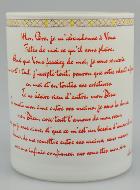 Mon Père, je m'abandonne à Vous
Faites de moi ce qu'il vous plaira.
Quoi que Vous fassiez de moi, je vous remercie
à tout, j'accepte tout, pourvu que votre volonté
en moi et en toutes vos créatures.
Je ne désire rien d'autre mon Dieu.
mon âme entre vos mains, je vous la donne
mon Dieu, avec tout l'amour de mon cœur
je vous aime et que ce m'est un besoin d'amour
de me remettre entre vos mains, sans mesure
avec une infinie confiance, car vous êtes mon Père.